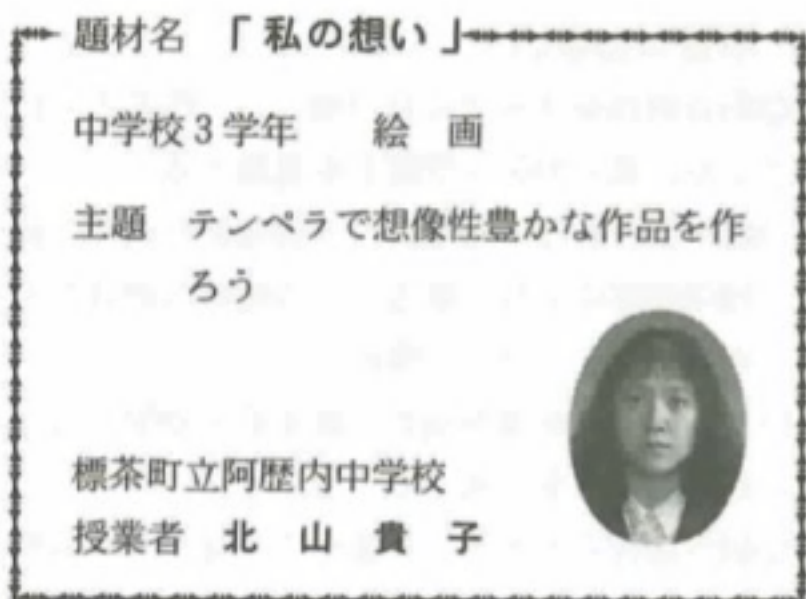 題材名 「私の想い」
中学校3学年 絵 画
主題 テンペラで想像性豊かな作品を作
ろう
標茶町立阿歴内中学校
授業者 北 山 貴 子